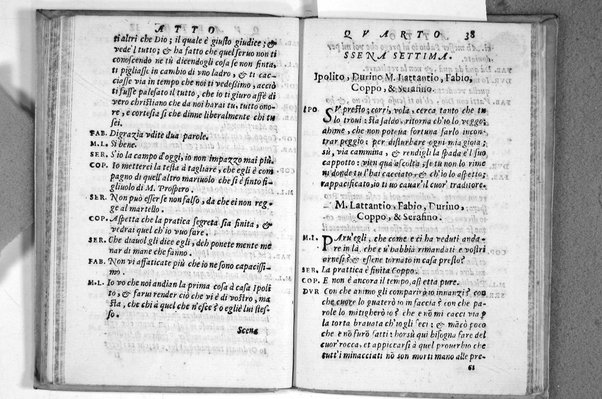 ATTO
ti altri che Dio; il quale è giusto giudice; &
vede'l tutto; & ha fatto che quel seruo non ti
conoscendo ne tù dicendogli cosa se non finta,
ti pigliasse in cambio di vno ladro, & ti cac-
ciasse via in tempo che noi ti vedessimo, acciò
ti fusse palesato il tutto, che io ti giuro assè di
vero christiano che da noi harai tutto hono-
re, e cortesia si che dinne liberalmente chi tu
sei.
FAB. Digrazia vdite dua parole.
M.L. Sì bene.
SER. Sio la campo d'oggi, io non impazzo mai più.
COP. Io metterei la testa à tagliare, che egli è com
pagno di quell'altro mariuolo che si è finto fi-
gliuolo di M. Prospero.
SER. Non può esserse non falso, da che ei non reg-
ge al martello.
COP. Aspetta che la pratica segreta sia finita, &
vedrai quel ch'io vuo fare.
SER. Che diauol gli dice egli, deh ponete mente me
nar di mane che fanno.
FAB. Non vi affaticate più che io ne sono capacissi-
mo.
M.L. Io vo che noi andian la prima cosa à casa Ipoli
to, & farui render ciò che vi è di vostro, ma
sta, che chi à quel che n'esce? o egli è lui stes-
so.
Scena
QVARTO. 38
SSENA SETTIMA.
Ipolito, Durino M. Lattantio, Fabio,
Coppo, & Serafino.
IPO. SV presto; corri, vola, cerca tanto che tu
lo troui: sta saldo, ritorna ch'io lo veggo;
ahime, che non poteua fortuna farlo incon-
trar peggio: per disturbare ogni mia gioia;
sù, via cammina, & rendigli la spada e'l suo
cappotto: vien qua ascolta, se tu non lo rime
ni donde tu l'hai cacciato, & ch'io ti aspetto;
rappacificato, io ti mo cauar'il cuor' traditore.
M. Lattantio, Fabio, Durino,
Coppo, & Serafino.
M.L. PAru'egli, che come e ci ha veduti anda-
re in là, che u'babbia rimandati e vostri
arnesi? & essene tornato in casa presto?
SER. La prattica è finita Coppo.
COP. E non è ancora il tempo, aspetta pure.
DVR Con che animo gli comparirò io innanzi? con
che cuore lo guaterò io in faccia? con che pa-
role lo mitigherò io? che e nõ mi cacci via p
la torta brauata ch'io gli feci; & màco poco
che e nõ furõ fatti: horsù qui bisogna fare del
cuor'rocca, et appiccarsi à quel prouerbio che
tutt'i minacciati nõ son morti mano alle pre-
61